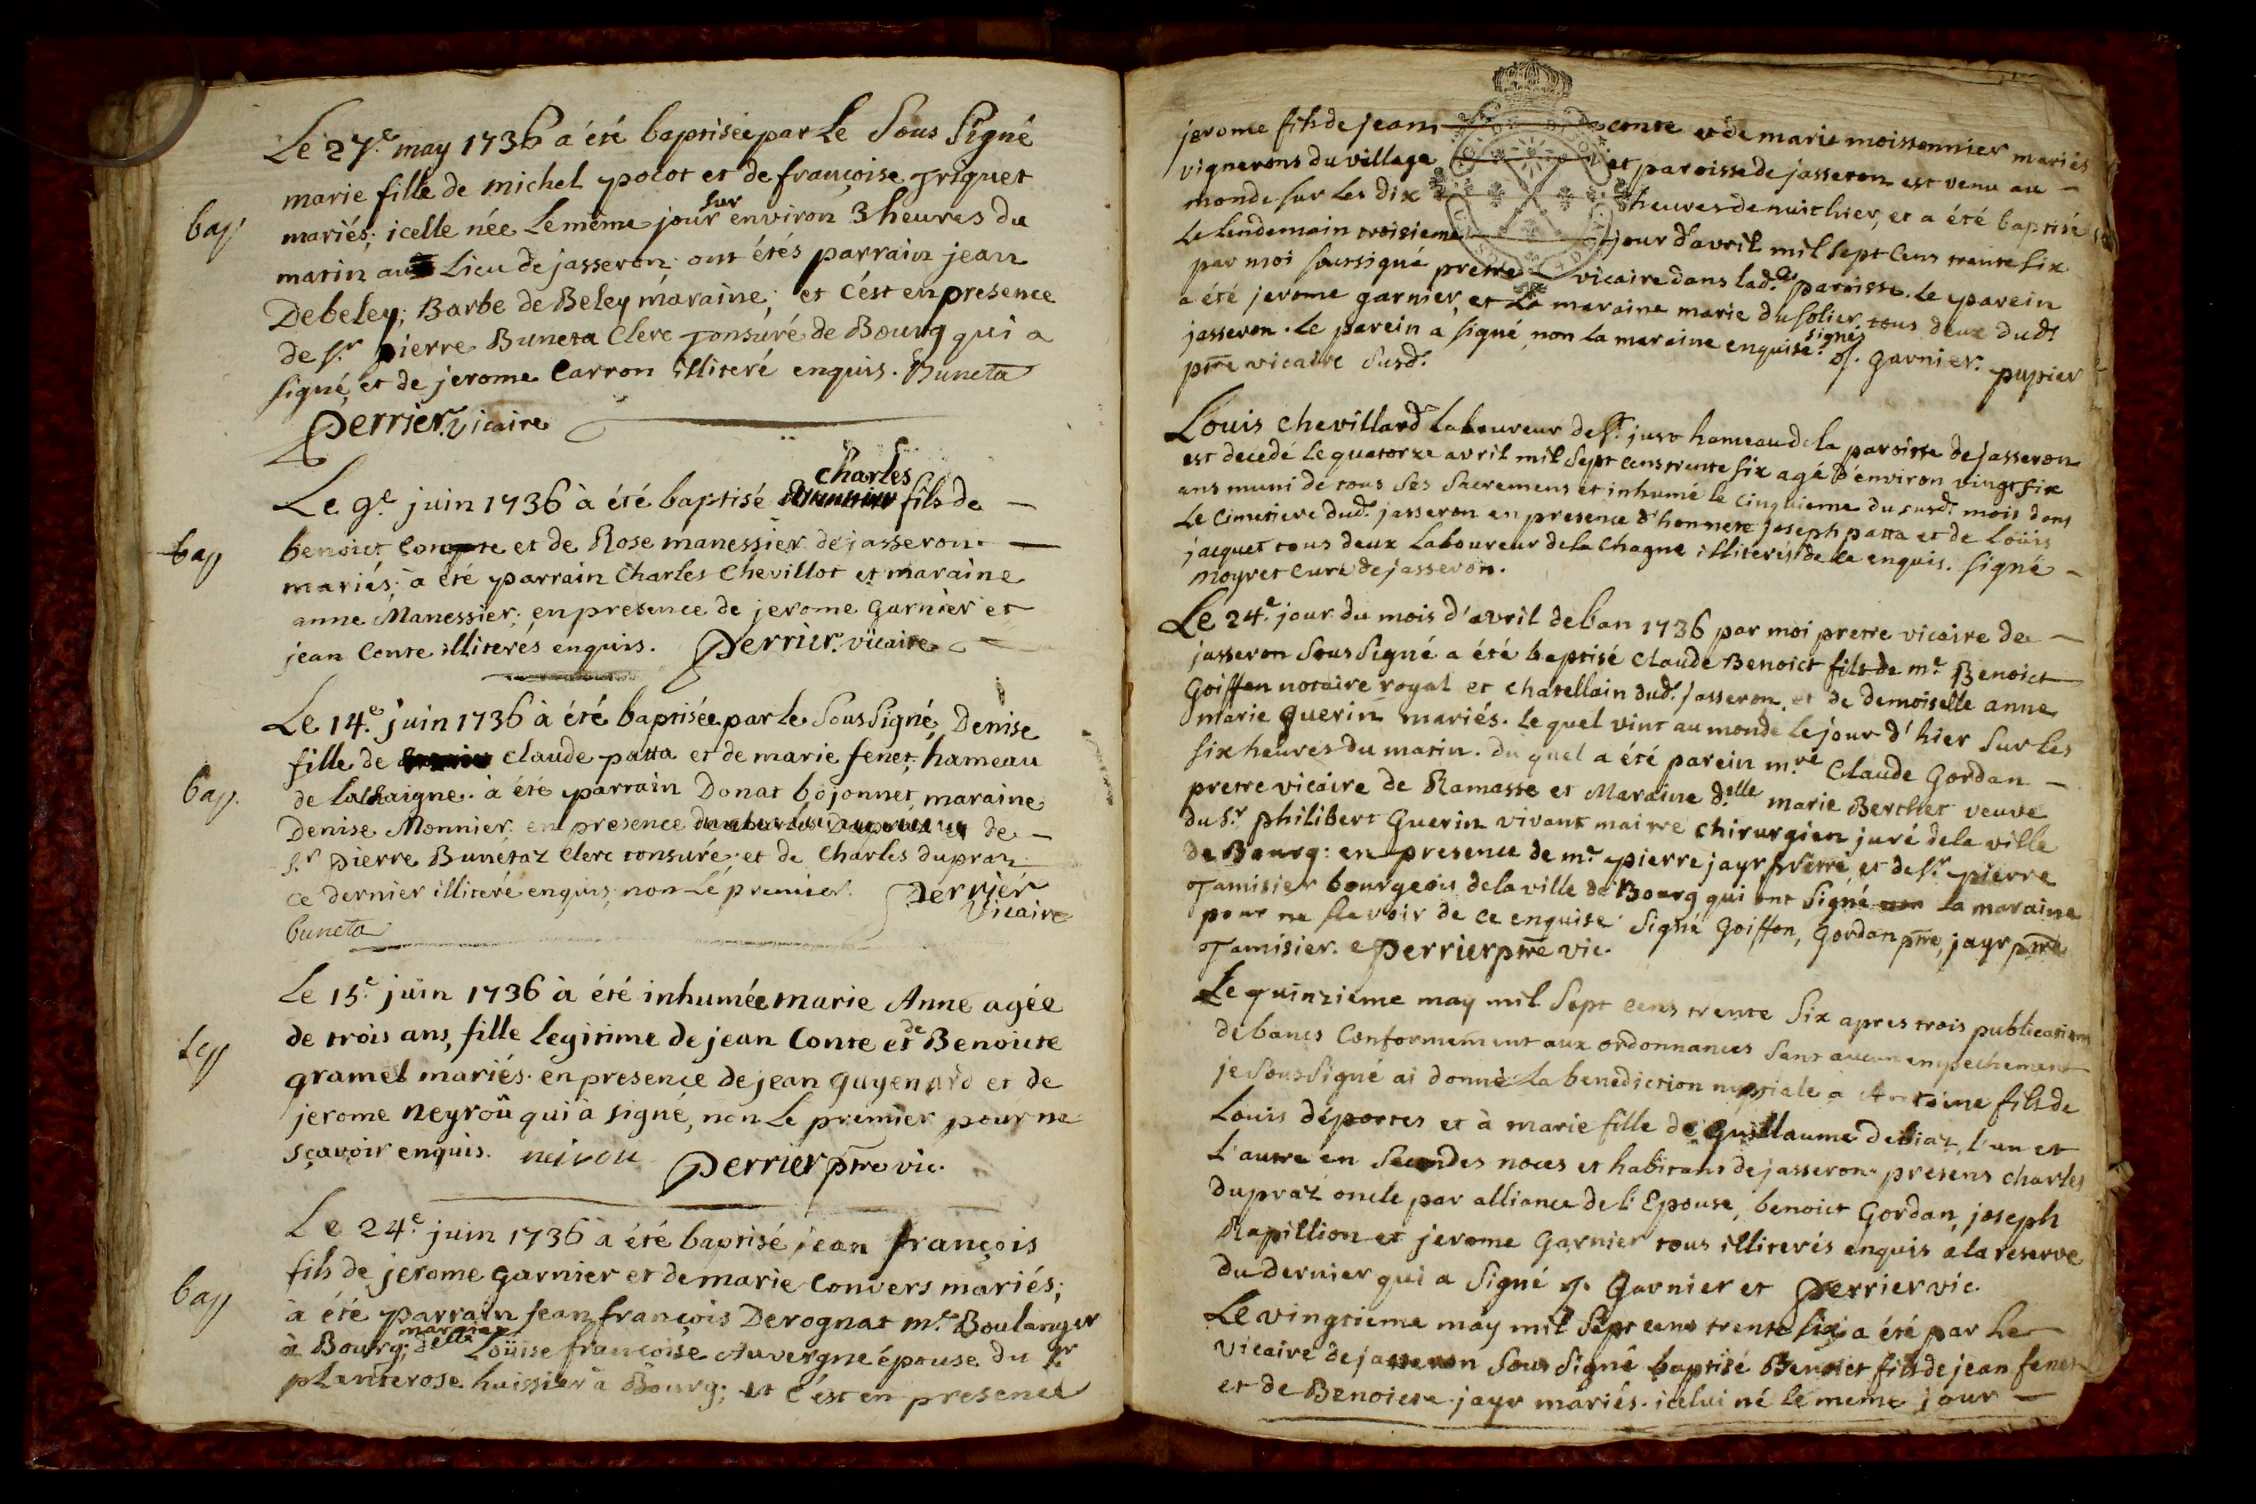 Le 27.e may 1736 a été baptisée par Le Sous Signé
marie fille de michel pocot et de françoise Triquet
bap
mariés; icelle née Le même jour sur environ 3 heures du
matin au Lieu de jasseron; ont étés parrain jean
Debeley; Barbe de Beley maraine; et c'est en presence
de s.r pierre Buneta Clerc Tonsuré de Bourg qui a
signé, et de jerome Carron illiteré enquis. Buneta
Perrier. vicaire
Le 9.e juin 1736 à été baptisé Charles fils de
bap
benoict Conte et de Rose manessier de jasseron
mariés; a été parrain Charles Chevillot et maraine
anne Manessier; en presence de jerome Garnier et
jean Conte illiterés enquis. Perrier. vicaire
Le 14.e juin 1736 à été baptisée par le Sous Signé, Denise
fille de claude patta et de marie fenet, hameau
bap.
de laChaigne. à été parrain Donat bojonnet, maraine
Denise Monnier. en presence de
s.r pierre Bunetaz Clerc tonsuré; et de Charles dupraz
ce dernier illiteré enquis, non Lé premier. Perrier
Vicaire
buneta
Le 15.e juin 1736 à été inhumée marie Anne agée
de trois ans, fille legitime de jean Conte et de Benoite
gramel mariés. en presence de jean guyenard et de
jerome neyroû qui à signé, non Le premier pour ne
sçavoir enquis. neirou Perrier ptre vic.
Le 24.e juin 1736 à été baptisé jean françois
bap
fils de jerome garnier et de marie Convers mariés;
à été parrain jean françois Derognat m.e Boulanger
à Bourg; marraine delle Loüise françoise Auvergne épouse du sr
planterose huissier à Bourg; et c'est en presence
jerome fils de jean conte et de marie moissonnier mariés
vignerons du village et paroisse de jasseron est venu au
monde sur Les dix heures de nuit hier, et a été baptisé
Le lendemain troisieme jour d'avril mil sept Cens trente six
par moi soussigné pretre vicaire dans lad.e paroisse. Le parein
a été jerome garnier, et La maraine marie du solier, tous deux dudt
jasseron. Le parein a signé, non la maraine enquise. signé J. garnier. pupier
ptre vicaire susd.t
Louis Chevillard Laboureur de st. just hameau de la paroisse de jasseron
est decedé Le quatorze avril mil Sept Cens trente six agé d'environ vingt six
ans muni de tous Ses Sacremens et inhumé le Cinquieme du susdt mois dans
Le Cimetiere dud.t jasseron en presence d'honnete joseph patta et de Loüis
jacquet tous deux Laboureur de la Chagne illiterés de ce enquis. signé
moyret Curé de jasseron.
Le 24.e jour du mois d'avril de l'an 1736 par moi pretre vicaire de
jasseron Sous Signé a été baptisé Claude Benoict fils de m.e Benoict
Goiffon notaire royal et chatellain dud.t jasseron, et de demoiselle anne
marie guerin mariés. Le quel vint au monde Le jour d'hier Sur Les
six heures du matin. du quel a été parein m.re Claude Gordan
pretre vicaire de Ramasse et Maraine d.elle marie Berchet veuve
du S.r philibert Guerin vivant maitre Chirurgien juré de la ville
de Bourg: en presence de m.e pierre jayr pretre et de sr. pierre
Tamisier bourgeois de la ville de Bourg qui ont signé non La maraine
pour ne sçavoir de ce enquise. Signé Goiffon, Gordan ptre, jayr ptre
Tamisier. Perrier ptre vic.
Le quinzieme may mil Sept cens trente Six apres trois publications
de bancs Conformement aux ordonnances sant aucun empechement
je Sous Signé ai donné La benediction nuptiale a Antoine fils de
Louis déportes et à marie fille de Guillaume debiaz, l'un et
L'autre en Secondes noces et habitans de jasseron. presens Charles
dupraz oncle par alliance de l'Epouse, benoict Gordan, joseph
Rapillion et jerome Garnier tous illiterés enquis a la reserve
du dernier qui a Signé J. Garnier et Perrier vic.
Le vingtieme may mil Sept cens trente six, a été par Le
vicaire de jasseron Sous Signé baptisé Benoict fils de jean fenet
et de Benoiste jayr mariés. icelui né le meme jour